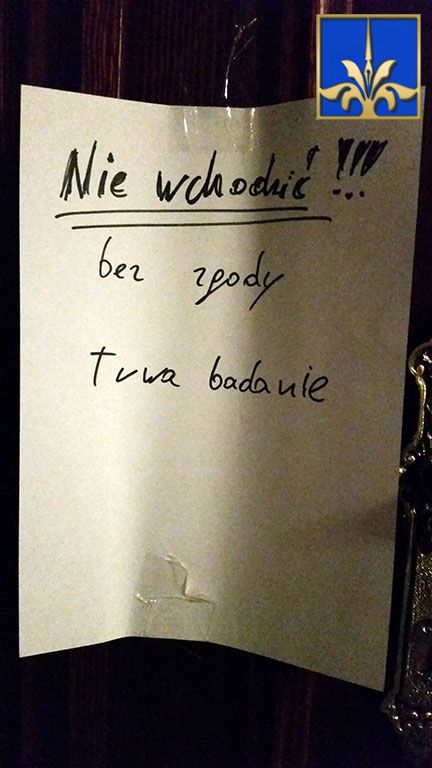 Nie wchodzić !!!
bez zgody
trwa badanie